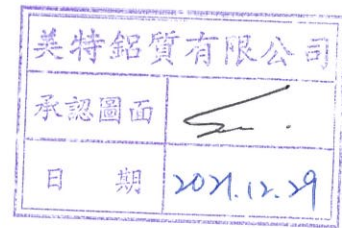 美特鋁質有限公司
承認圖面
日期 2021.12.29